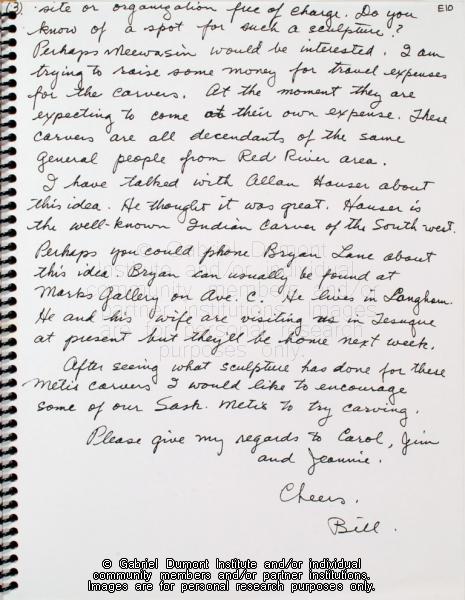 (3)
E10
site or organization free of charge. Do you
know of a spot for such a sculpture?
Perhaps Meewasin would be interested. I am
trying to raise some money for travel expenses
for the carvers. At the moment they are
expecting to come at their own expense. These
carvers are all decendants of the same
general people from Red River area.
I have talked with Allan Houser about
this idea. He thought it was great. Houser is
the well-known Indian Carver of the South west.
Perhaps you could phone Bryan Lane about
this idea. Bryan can usually be found at
Marks Gallery on Ave. C. He lives in Langham.
He and his wife are visiting us in Tesuque
at present but they'll be home next week.
After seeing what sculpture has done for these
Metis carvers I would like to encourage
some of our Sask. Metis to try carving.
Please give my regards to Carol, Jim
and Jeannie.
Cheers.
Bill.
© Gabriel Dumont Institute and/or individual
community members and/or partner institutions.
Images are for personal research purposes only.
© Gabriel Dumont
Institute and/or individual
community members and/or
partner institutions. Images
are for personal research
purposes only.